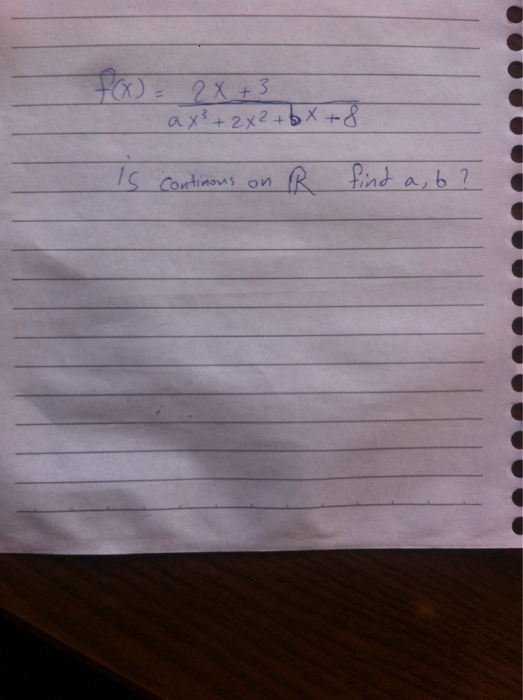 f(x) = 2x + 3 / ax³ + 2x² + bx + 8
is continous on ℝ find a, b ?